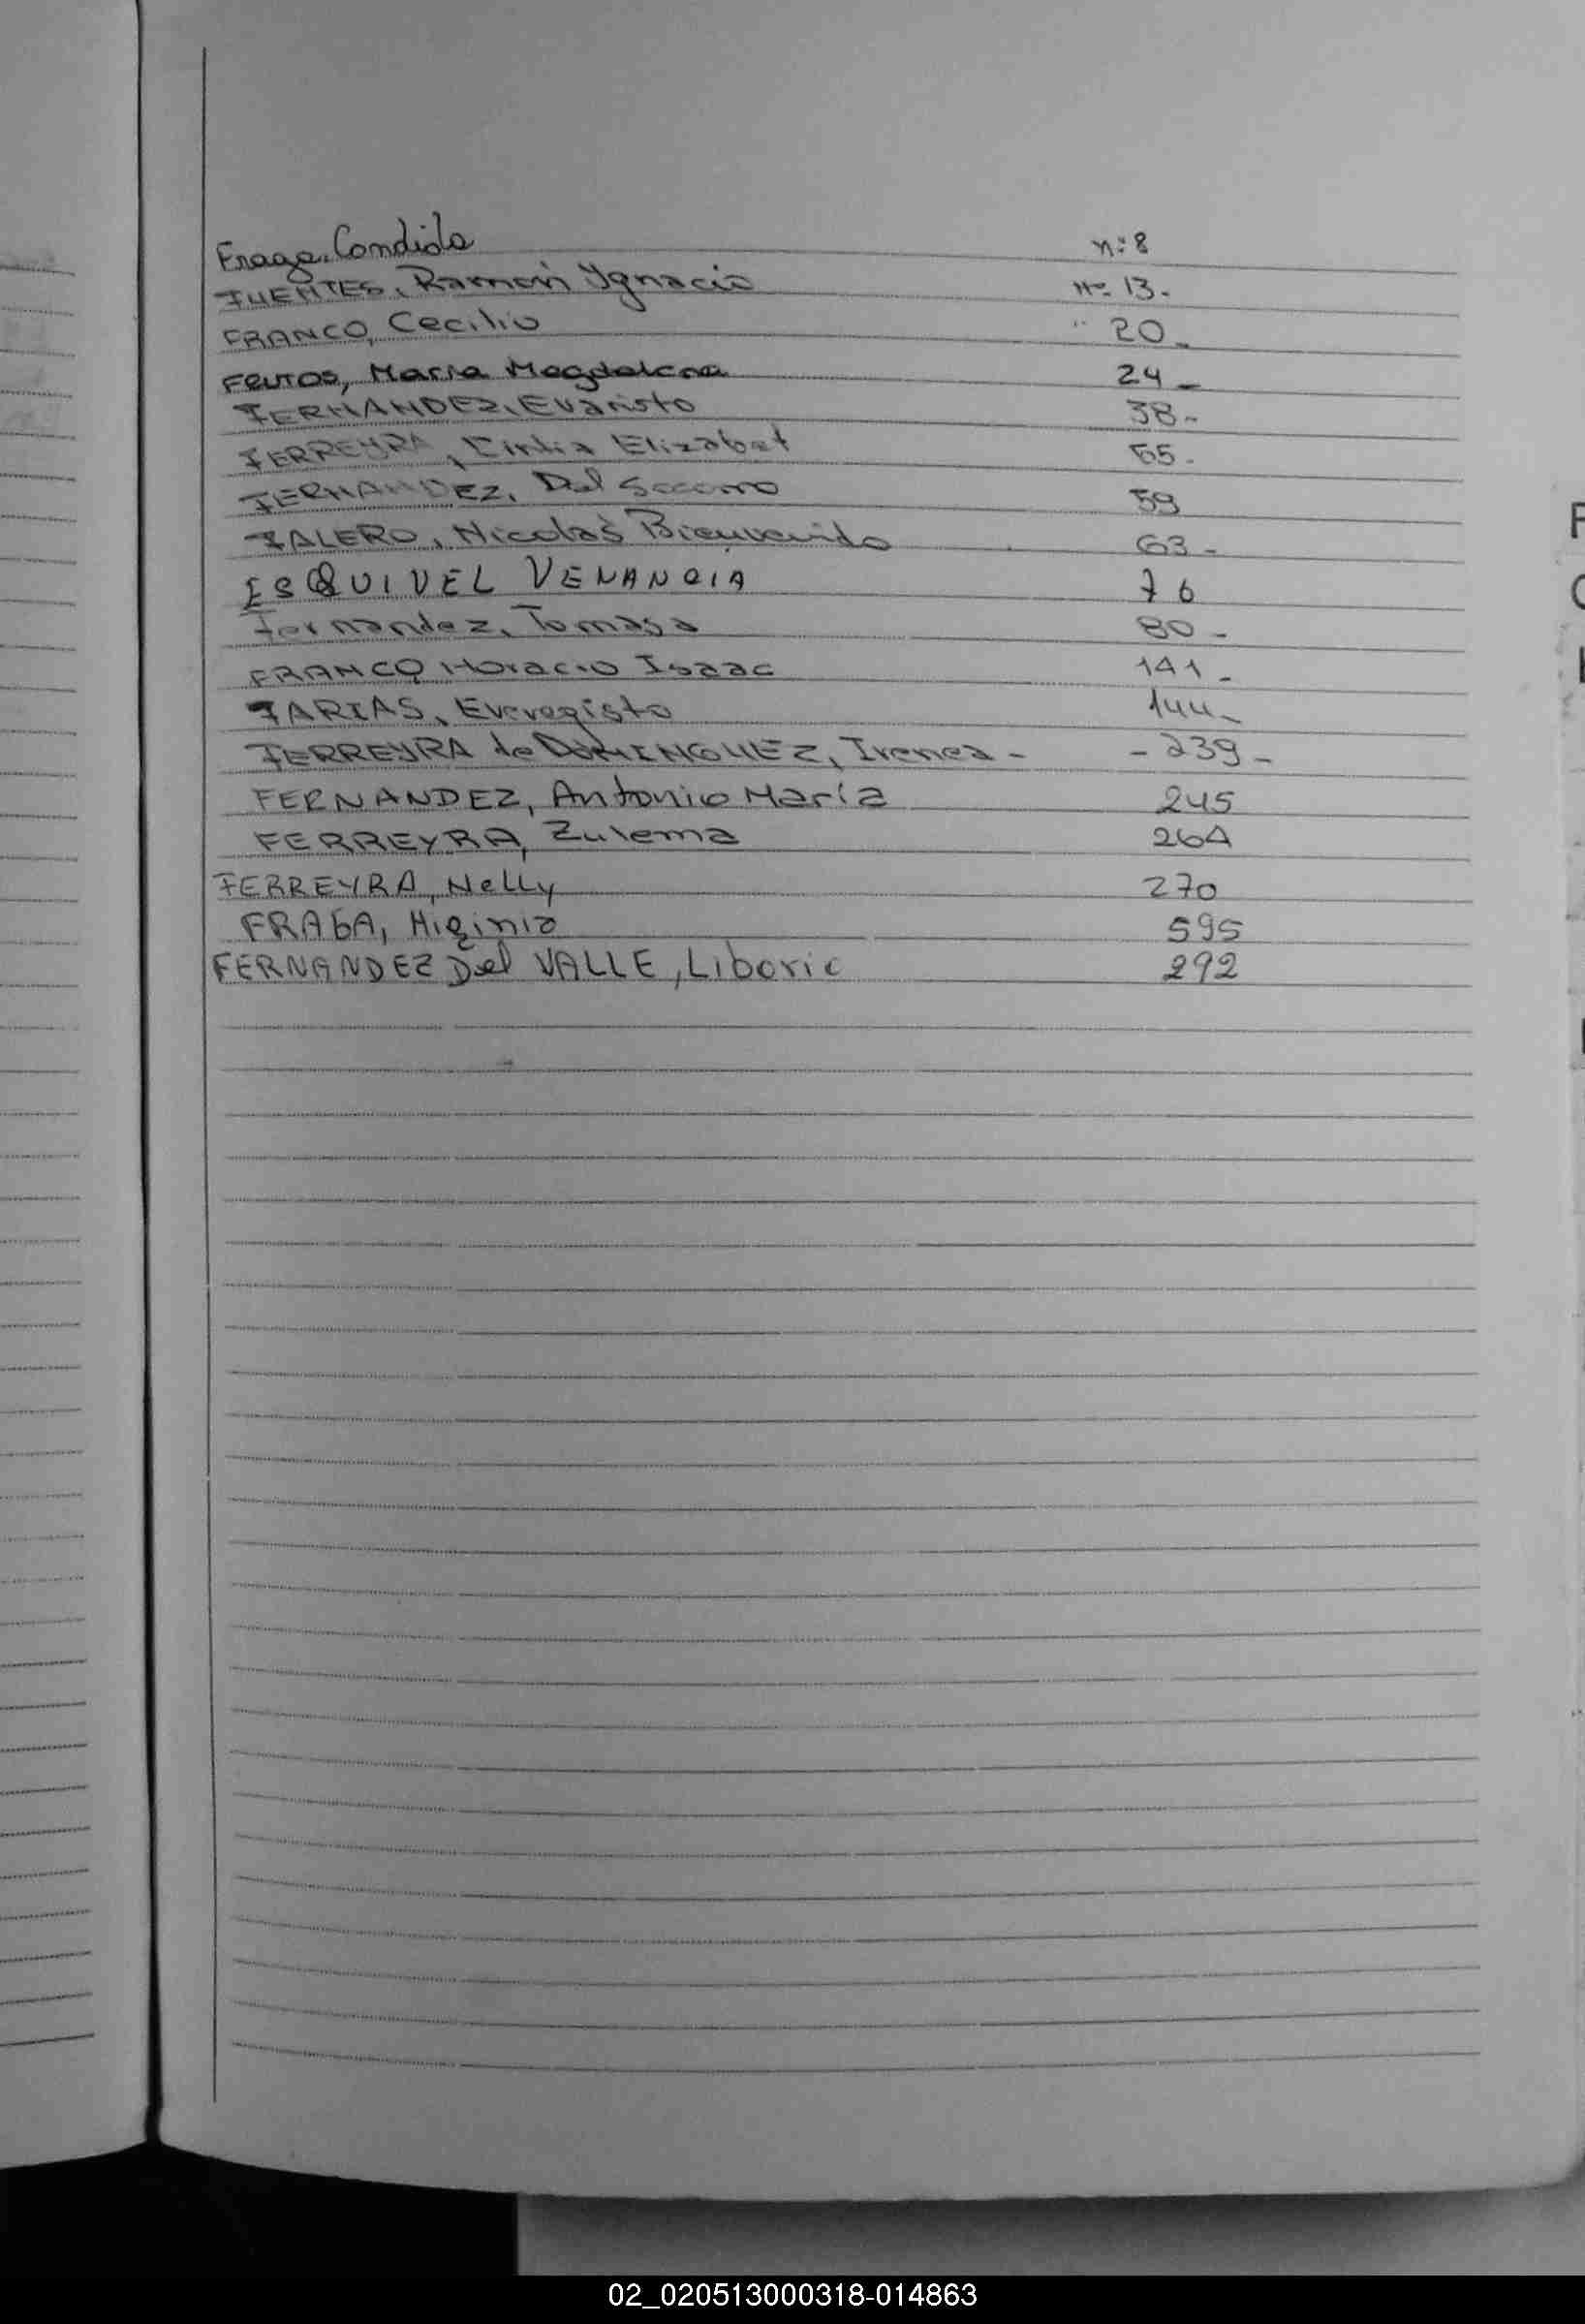 Fraga, Candida n:8
FUENTES, Ramón Ygnacio Nº 13.
FRANCO, Cecilio " 20_
FRUTOS, Maria Magdalena 24_
FERNANDEZ, Evaristo 38-
FERREYRA, Cintia Elizabet 55.
FERNANDEZ, Del Socorro 59
FALERO, Nicolás Bienvenido 63-
ESQUIVEL VENANCIA 76
Fernandez, Tomasa 80-
FRANCO Horacio Isaac 141_
FARIAS, Everegisto 144_
FERREYRA de DOMINGUEZ, Irenea - - 239_
FERNANDEZ, Antonio María 245
FERREYRA, Zulema 264
FERREYRA, Nelly 270
FRAGA, Higinia 595
FERNANDEZ Del VALLE, Liborio 292
02_020513000318-014863